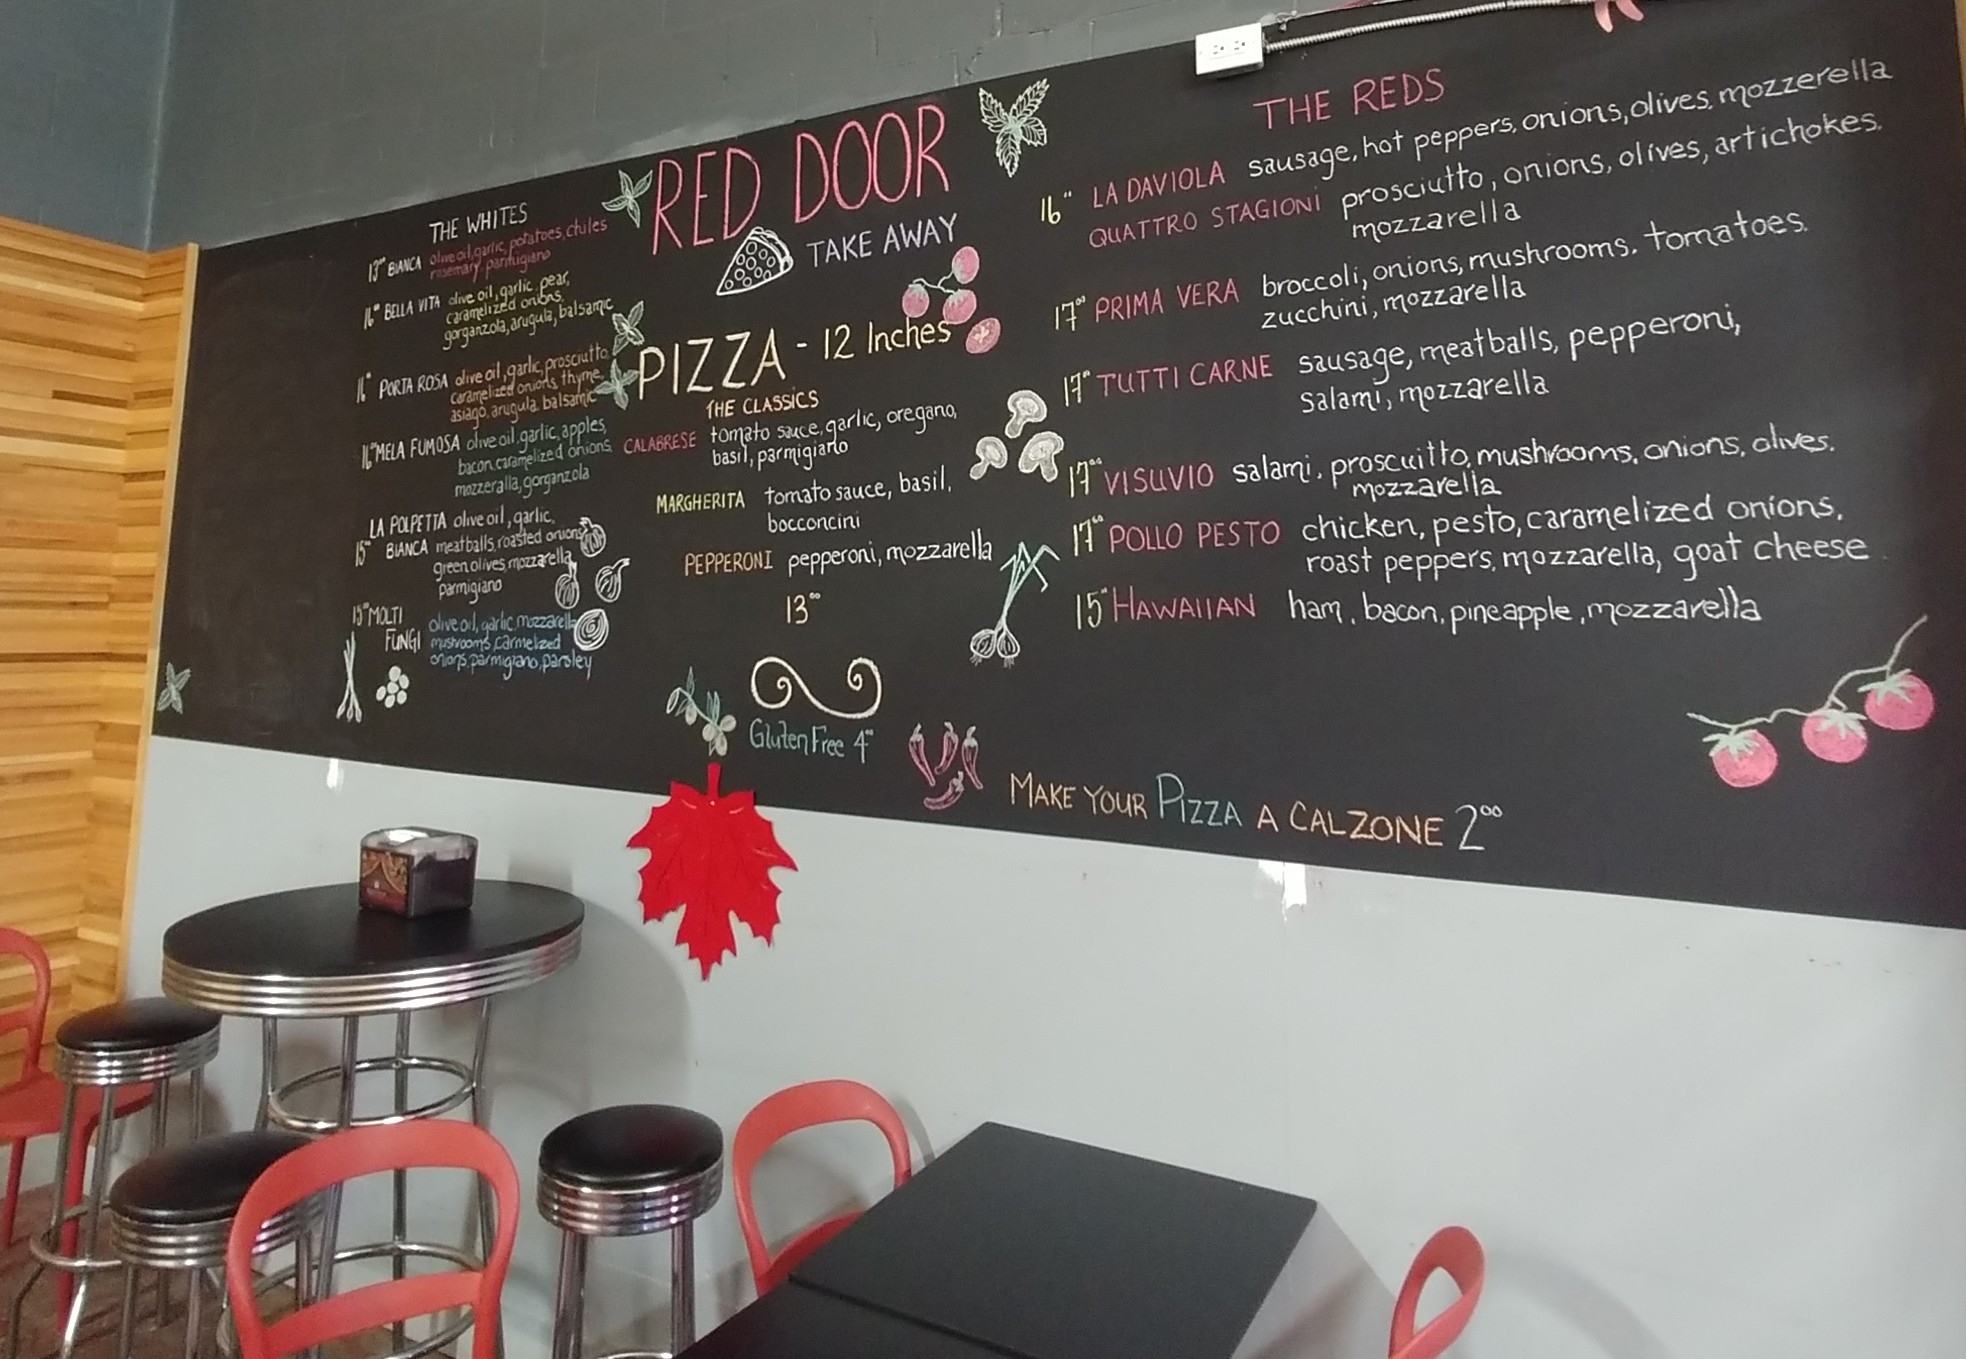 THE WHITES
13⁰⁰ BIANCA olive oil, garlic, potatoes, chiles
rosemary, parmigiano
16⁰⁰ BELLA VITA olive oil, garlic, pear,
caramelized onions,
gorganzola, arugula, balsamic
16⁰⁰ PORTA ROSA olive oil, garlic, prosciutto,
caramelized onions, thyme,
asiago, arugula, balsamic
16⁰⁰ MELA FUMOSA olive oil, garlic, apples,
bacon, caramelized onions,
mozzeralla, gorganzola
LA POLPETTA olive oil, garlic,
15⁰⁰ BIANCA meatballs, roasted onions
green olives, mozzarella
parmigiano
15⁰⁰ MOLTI olive oil, garlic, mozzarella
FUNGI mushrooms, carmelized
onions, parmigiano, parsley
RED DOOR
TAKE AWAY
PIZZA - 12 Inches
THE CLASSICS
CALABRESE tomato sauce, garlic, oregano,
basil, parmigiano
MARGHERITA tomato sauce, basil,
bocconcini
PEPPERONI pepperoni, mozzarella
13⁰⁰
Gluten Free 4⁰⁰
THE REDS
16⁰⁰ LA DAVIOLA sausage, hot peppers, onions, olives, mozzerella
QUATTRO STAGIONI prosciutto, onions, olives, artichokes,
mozzarella
17⁰⁰ PRIMA VERA broccoli, onions, mushrooms, tomatoes,
zucchini, mozzarella
17⁰⁰ TUTTI CARNE sausage, meatballs, pepperoni,
salami, mozzarella
17⁰⁰ VISUVIO salami, proscuitto, mushrooms, onions, olives,
mozzarella
17⁰⁰ POLLO PESTO chicken, pesto, caramelized onions,
roast peppers, mozzarella, goat cheese
15⁰⁰ HAWAIIAN ham, bacon, pineapple, mozzarella
MAKE YOUR PIZZA A CALZONE 2⁰⁰